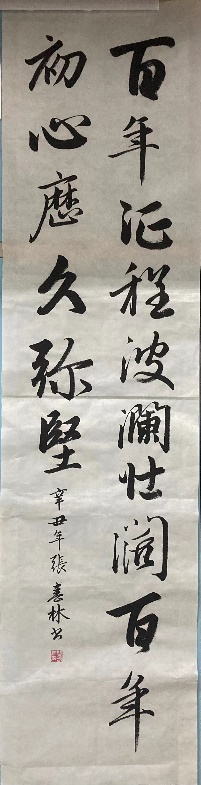 百年征程波澜壮阔百年
初心歷久弥堅
辛丑年張喜林书